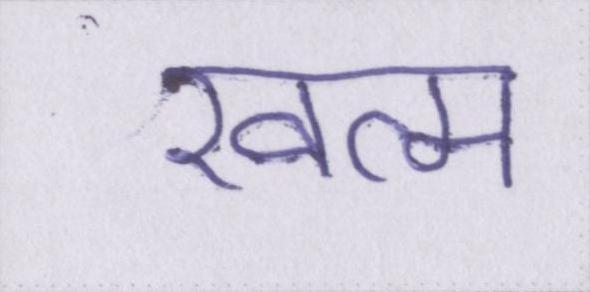 खत्म